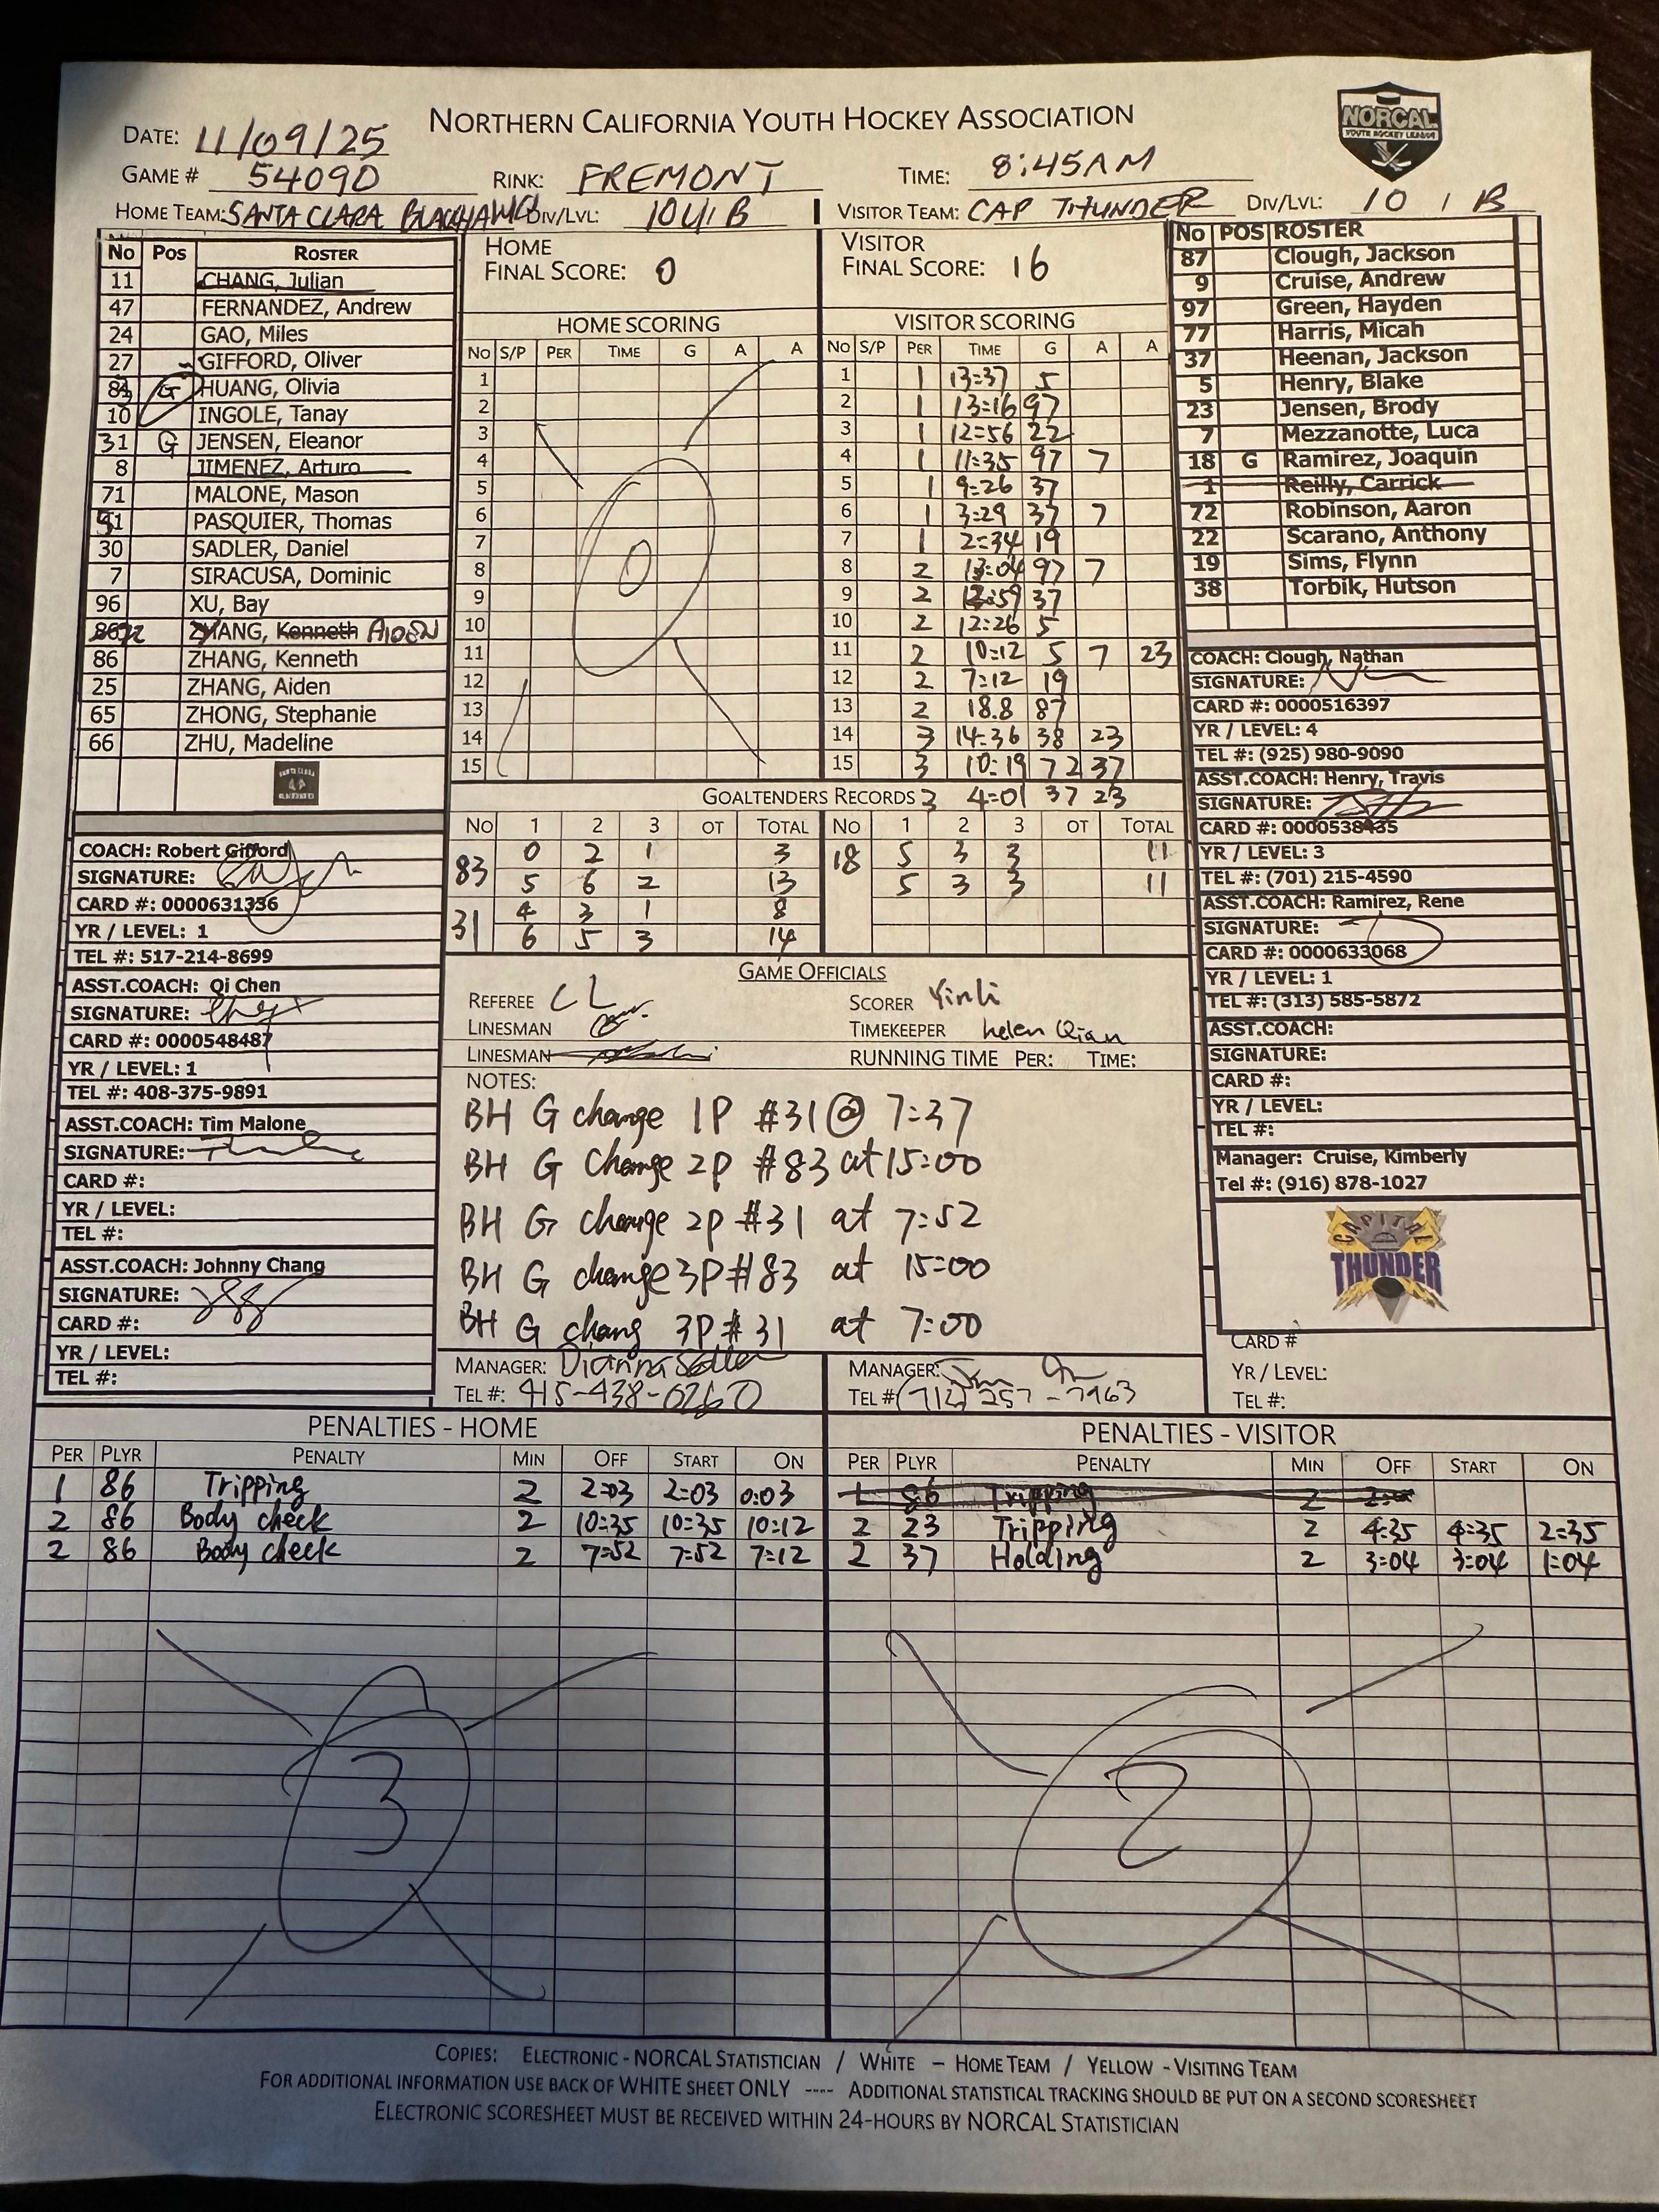 NORTHERN CALIFORNIA YOUTH HOCKEY ASSOCIATION
NORCAL
YOUTH HOCKEY LEAGUE
DATE: 11/09/25
GAME # 54090 RINK: FREMONT TIME: 8:45AM
HOME TEAM: SANTA CLARA BLACKHAWK DIV/LVL: 10U/B
VISITOR TEAM: CAP THUNDER DIV/LVL: 10 / B
No Pos ROSTER
11 CHANG, Julian
47 FERNANDEZ, Andrew
24 GAO, Miles
27 GIFFORD, Oliver
G HUANG, Olivia
10 INGOLE, Tanay
31 G JENSEN, Eleanor
8 JIMENEZ, Arturo
71 MALONE, Mason
51 PASQUIER, Thomas
30 SADLER, Daniel
7 SIRACUSA, Dominic
96 XU, Bay
ZHANG, Kenneth AIDEN
86 ZHANG, Kenneth
25 ZHANG, Aiden
65 ZHONG, Stephanie
66 ZHU, Madeline
COACH: Robert Gifford
SIGNATURE:
CARD #: 0000631336
YR / LEVEL: 1
TEL #: 517-214-8699
ASST.COACH: Qi Chen
SIGNATURE:
CARD #: 0000548487
YR / LEVEL: 1
TEL #: 408-375-9891
ASST.COACH: Tim Malone
SIGNATURE:
CARD #:
YR / LEVEL:
TEL #:
ASST.COACH: Johnny Chang
SIGNATURE:
CARD #:
YR / LEVEL:
TEL #:
HOME
FINAL SCORE: 0
HOME SCORING
No S/P PER TIME G A A
1
2
3
4
5
6
7
8
9
10
11
12
13
14
15
0
VISITOR
FINAL SCORE: 16
VISITOR SCORING
No S/P PER TIME G A A
1 1 13:37 5
2 1 13:16 97
3 1 12:56 22
4 1 11:35 97 7
5 1 9:26 37
6 1 3:29 37 7
7 1 2:34 19
8 2 13:04 97 7
9 2 12:59 37
10 2 12:26 5
11 2 10:12 5 7 23
12 2 7:12 19
13 2 18.8 87
14 3 14:36 38 23
15 3 10:19 72 37
GOALTENDERS RECORDS 3 4:01 37 23
No 1 2 3 OT TOTAL
83 0 2 1 3
5 6 2 13
31 4 3 1 8
6 5 3 14
No 1 2 3 OT TOTAL
18 5 3 3 11
5 3 3 11
GAME OFFICIALS
REFEREE CL
LINESMAN
LINESMAN
SCORER Yinli
TIMEKEEPER helen Qian
RUNNING TIME PER: TIME:
NOTES:
BH G change 1P #31 @ 7:37
BH G change 2P #83 at 15:00
BH G change 2P #31 at 7:52
BH G change 3P #83 at 15:00
BH G chang 3P #31 at 7:00
MANAGER: Dianna
TEL #: 415-438-0260
MANAGER:
TEL # (714) 257-7963
No POS ROSTER
87 Clough, Jackson
9 Cruise, Andrew
97 Green, Hayden
77 Harris, Micah
37 Heenan, Jackson
5 Henry, Blake
23 Jensen, Brody
7 Mezzanotte, Luca
18 G Ramirez, Joaquin
1 Reilly, Carrick
72 Robinson, Aaron
22 Scarano, Anthony
19 Sims, Flynn
38 Torbik, Hutson
COACH: Clough, Nathan
SIGNATURE:
CARD #: 0000516397
YR / LEVEL: 4
TEL #: (925) 980-9090
ASST.COACH: Henry, Travis
SIGNATURE:
CARD #: 0000538435
YR / LEVEL: 3
TEL #: (701) 215-4590
ASST.COACH: Ramirez, Rene
SIGNATURE:
CARD #: 0000633068
YR / LEVEL: 1
TEL #: (313) 585-5872
ASST.COACH:
SIGNATURE:
CARD #:
YR / LEVEL:
TEL #:
Manager: Cruise, Kimberly
Tel #: (916) 878-1027
CAPITAL
THUNDER
CARD #
YR / LEVEL:
TEL #:
PENALTIES - HOME
PER PLYR PENALTY MIN OFF START ON
1 86 Tripping 2 2:03 2:03 0:03
2 86 Body check 2 10:35 10:35 10:12
2 86 Body check 2 7:52 7:52 7:12
3
PENALTIES - VISITOR
PER PLYR PENALTY MIN OFF START ON
1 86 Tripping 2
2 23 Tripping 2 4:35 4:35 2:35
2 37 Holding 2 3:04 3:04 1:04
2
COPIES: ELECTRONIC - NORCAL STATISTICIAN / WHITE – HOME TEAM / YELLOW - VISITING TEAM
FOR ADDITIONAL INFORMATION USE BACK OF WHITE SHEET ONLY ---- ADDITIONAL STATISTICAL TRACKING SHOULD BE PUT ON A SECOND SCORESHEET
ELECTRONIC SCORESHEET MUST BE RECEIVED WITHIN 24-HOURS BY NORCAL STATISTICIAN